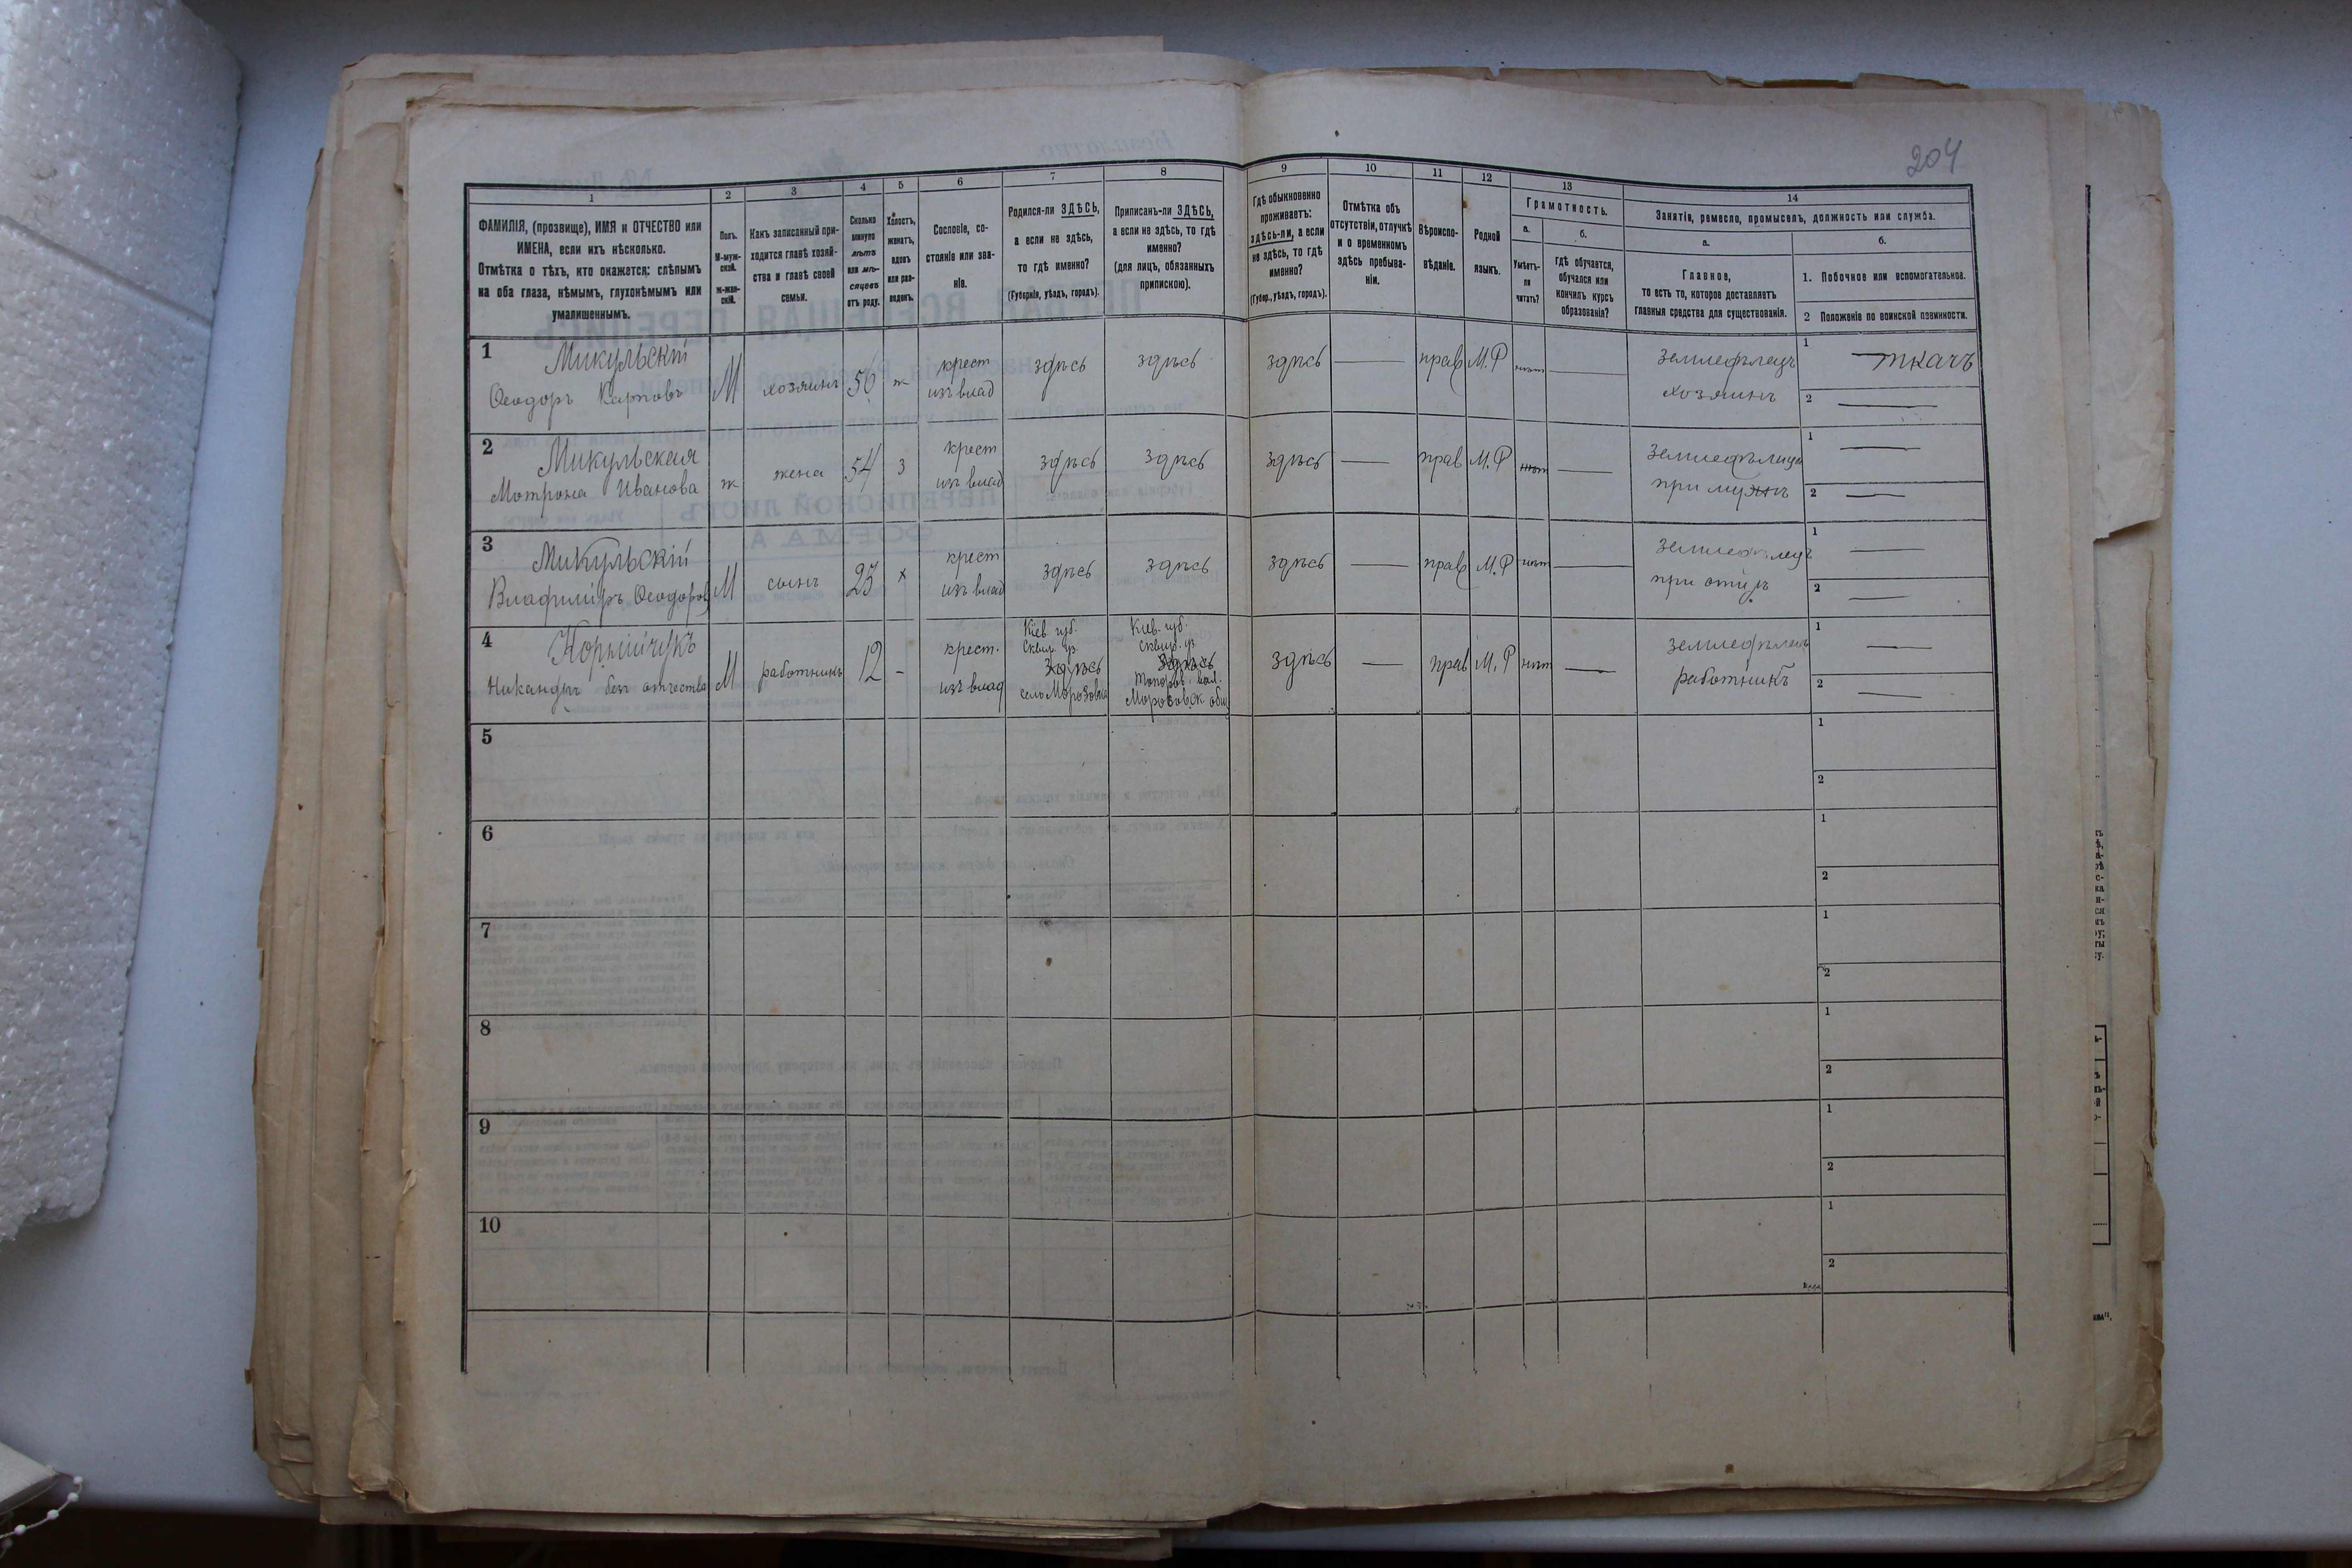 204
1 2 3 4 5 6 7 8 9 10 11 12 13 14
ФАМИЛІЯ, (прозвище), ИМЯ и ОТЧЕСТВО или
ИМЕНА, если ихъ нѣсколько.
Отмѣтка о тѣхъ, кто окажется: слѣпымъ
на оба глаза, нѣмымъ, глухонѣмымъ или
умалишеннымъ.
Полъ.
М-муж-
ской.
ж-жен-
скій.
Какъ записанный при-
ходится главѣ хозяй-
ства и главѣ своей
семьи.
Сколько
минуло
лѣтъ
или мѣ-
сяцевъ
отъ роду.
Холостъ,
женатъ,
вдовъ
или раз-
веденъ.
Сословіе, со-
стояніе или зва-
ніе.
Родился-ли ЗДѢСЬ,
а если не здѣсь,
то гдѣ именно?
(Губернія, уѣздъ, городъ).
Приписанъ-ли ЗДѢСЬ,
а если не здѣсь, то гдѣ
именно?
(для лицъ, обязанныхъ
припискою).
Гдѣ обыкновенно
проживаетъ:
здѣсь-ли, а если
не здѣсь, то гдѣ
именно?
(Губер., уѣздъ, городъ).
Отмѣтка объ
отсутствіи, отлучкѣ
и о временномъ
здѣсь пребыва-
ніи.
Вѣроиспо-
вѣданіе.
Родной
языкъ.
Грамотность.
а.
Умѣетъ-
ли
читать?
б.
гдѣ обучается,
обучался или
кончилъ курсъ
образованія?
Занятія, ремесло, промыселъ, должность или служба.
а.
Главное,
то есть то, которое доставляетъ
главныя средства для существованія.
б.
1. Побочное или вспомогательное.
2 Положеніе по воинской повинности.
1 Микульскій
Ѳеодоръ Карповъ М хозяинъ 56 ж крест изъ влад здѣсь здѣсь здѣсь — прав М.Р нѣтъ — земледѣлецъ хозяинъ 1 ткачъ
2 —
2 Микульская
Мотрона Иванова ж жена 54 з крест изъ влад здѣсь здѣсь здѣсь — прав М.Р нѣтъ — земледѣлица при мужѣ 1 —
2 —
3 Микульскій
Владиміръ Ѳеодоровъ М сынъ 23 х крест изъ влад здѣсь здѣсь здѣсь — прав М.Р нѣтъ — земледѣлецъ при отцѣ 1 —
2 —
4
Никандръ безъ отчества М работникъ 12 - крест. изъ влад
Кіев. губ.
Сквир. уз.
здѣсь
село Морозовка
Кіев. губ.
Сквир. уз
здѣсь
Топоров. вол.
Морозовск общ
здѣсь — прав М.Р нѣтъ — земледѣлецъ работникъ 1 —
2 —
5 1
2
6 1
2
7 1
2
8 1
2
9 1
2
10 1
2